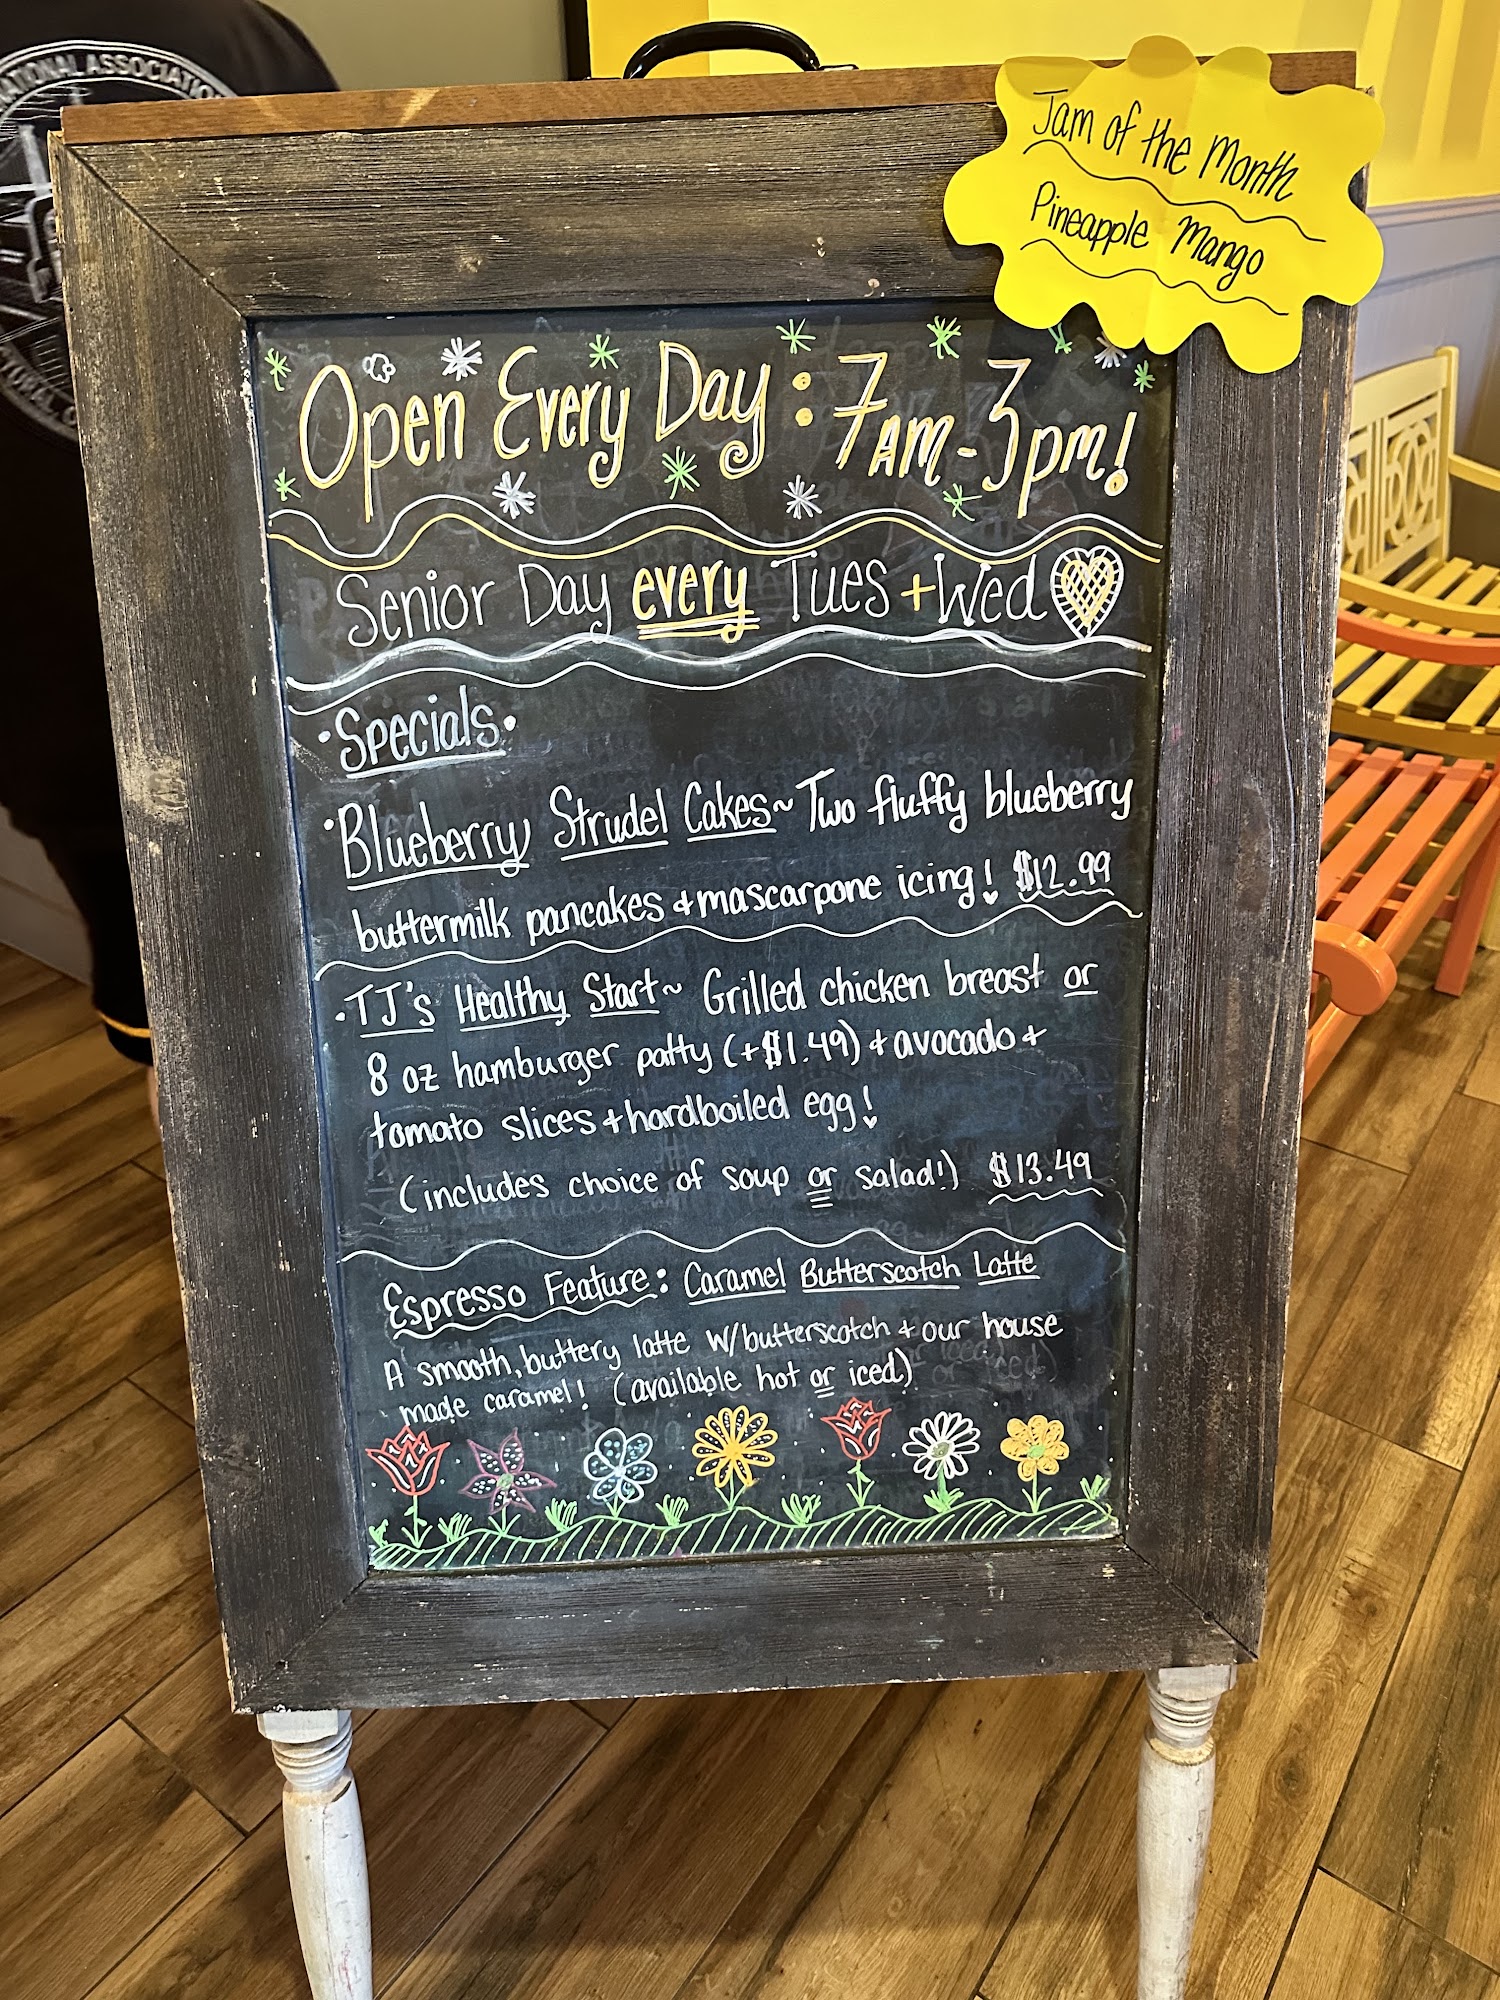 NATIONAL ASSOCIATION
Jam of the Month
Pineapple Mango
Open Every Day: 7AM-3pm!
Senior Day every Tues + Wed
•Specials•
•Blueberry Strudel Cakes~ Two fluffy blueberry
buttermilk pancakes + mascarpone icing! $12.99
•TJ's Healthy Start~ Grilled chicken breast or
8 oz hamburger patty (+$1.49) + avocado +
tomato slices + hardboiled egg!
(includes choice of soup or salad!) $13.49
Espresso Feature: Caramel Butterscotch Latte
A smooth, buttery latte w/butterscotch + our house
made caramel! (available hot or iced)